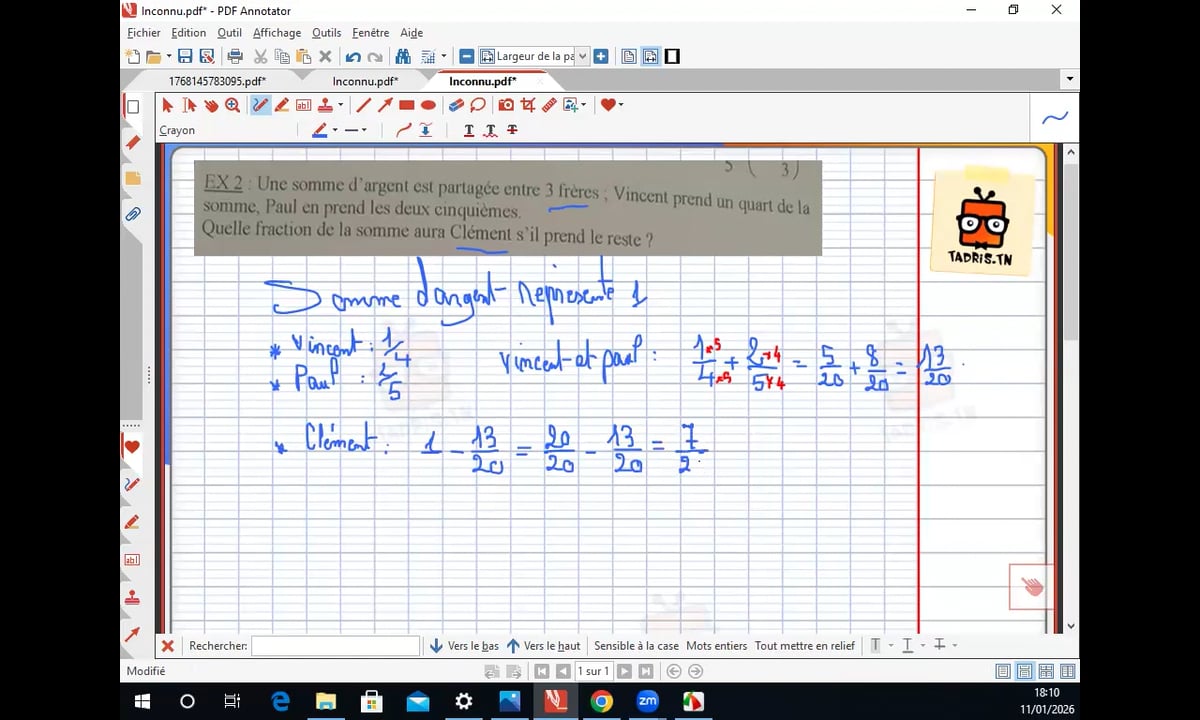 Inconnu.pdf* - PDF Annotator
Fichier Edition Outil Affichage Outils Fenêtre Aide
Largeur de la pa
1768145783095.pdf* Inconnu.pdf* Inconnu.pdf*
Crayon
5 ( 3 )
EX 2 : Une somme d'argent est partagée entre 3 frères ; Vincent prend un quart de la
somme, Paul en prend les deux cinquièmes.
Quelle fraction de la somme aura Clément s'il prend le reste ?
TADRIS.TN
Somme d'argent représente 1
* Vincent : 1/4
* Paul : 2/5
Vincent et paul : 1×5/4×5 + 2×4/5×4 = 5/20 + 8/20 = 13/20
* Clément : 1 - 13/20 = 20/20 - 13/20 = 7/2
Rechercher: Vers le bas Vers le haut Sensible à la case Mots entiers Tout mettre en relief
Modifié 1 sur 1
zm
18:10
11/01/2026